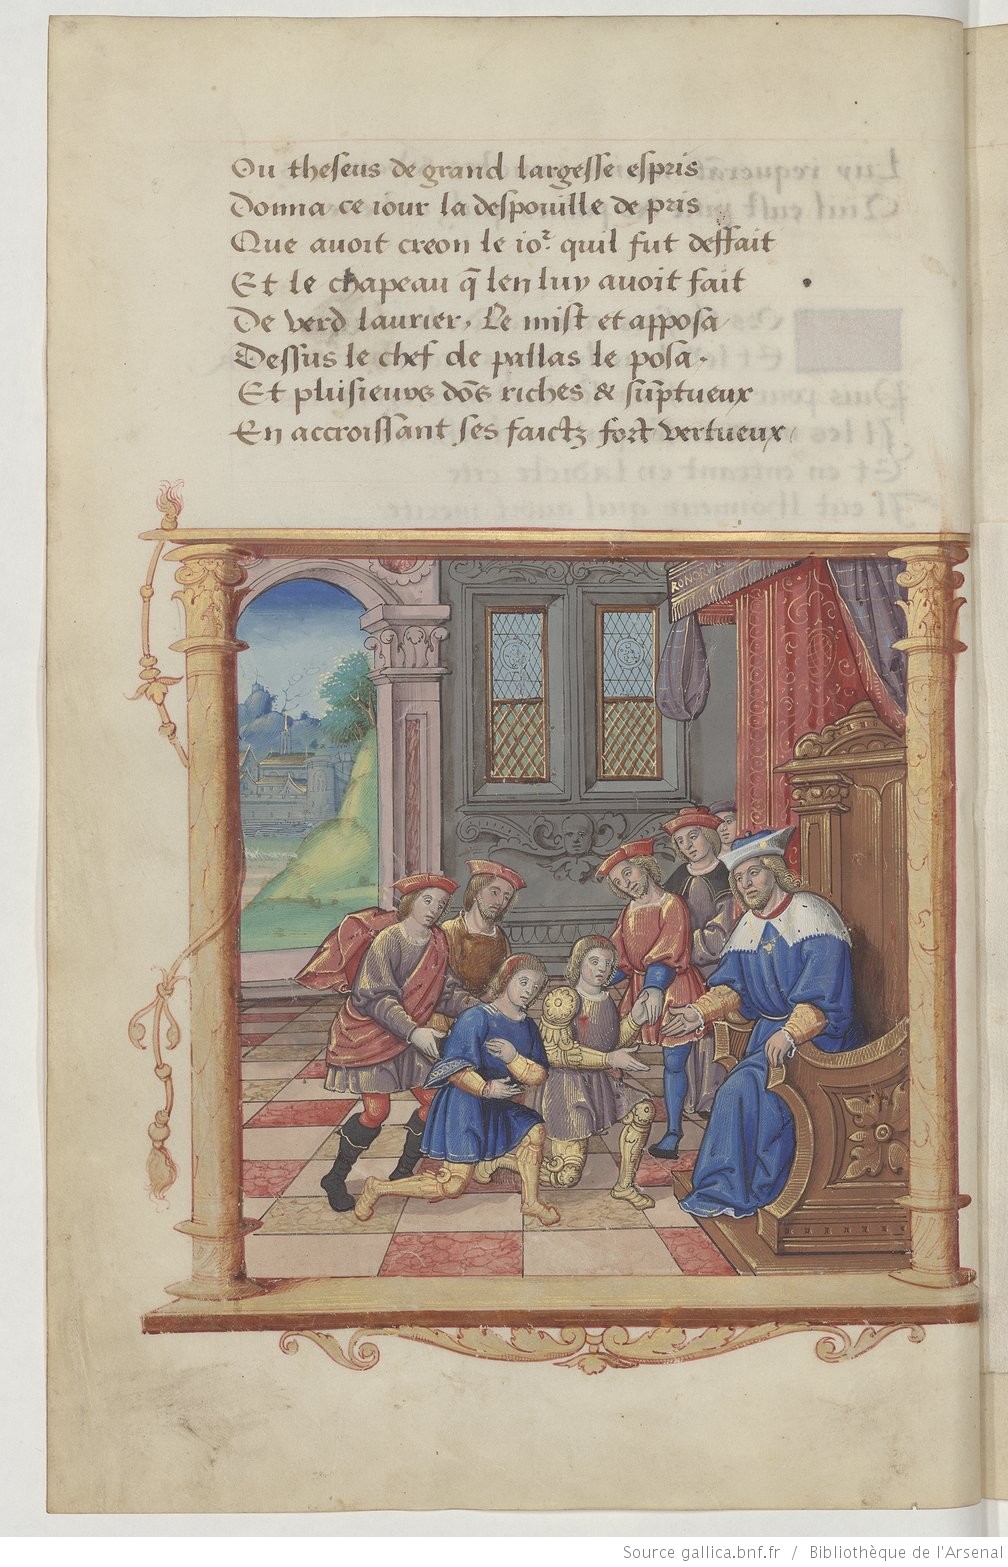 Ou theseus de grand largesse espris
Donna ce iour la despouille de pris
Que auoit creon le ioᷣ quil fut deffait
Et le chapeau q̄ len luy auoit fait
De verd laurier, Le mist et apposa
Dessus le chef de pallas le posa.
Et plusieurs dōs riches & sūptueux
En accroissant ses faictz fort vertueux
Source gallica.bnf.fr / Bibliothèque de l'Arsenal